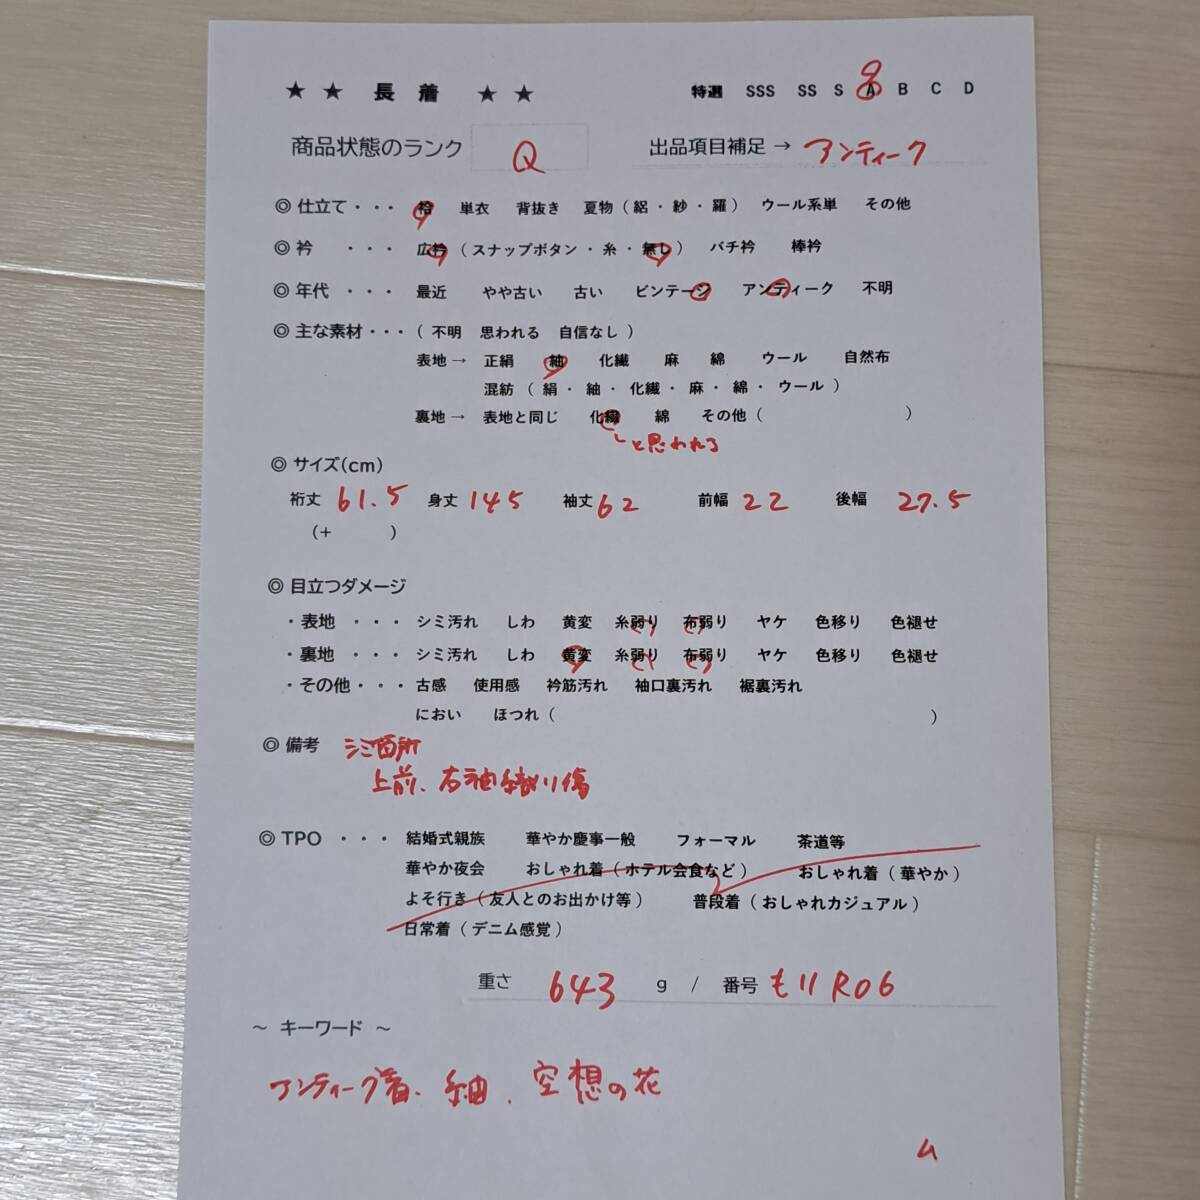 ★ ★ 長 着 ★ ★ 特選 SSS SS S A B C D
商品状態のランク Q 出品項目補足 → アンティーク
◎ 仕立て ・・・ 袷 単衣 背抜き 夏物 ( 絽 ・ 紗 ・ 羅 ) ウール系単 その他
◎ 衿 ・・・ 広衿 ( スナップボタン ・ 糸 ・ 無し ) バチ衿 棒衿
◎ 年代 ・・・ 最近 やや古い 古い ビンテージ アンティーク 不明
◎ 主な素材・・・ ( 不明 思われる 自信なし )
表地 → 正絹 紬 化繊 麻 綿 ウール 自然布
混紡 ( 絹 ・ 紬 ・ 化繊 ・ 麻 ・ 綿 ・ ウール )
裏地 → 表地と同じ 化繊 綿 その他 ( )
と思われる
◎ サイズ(cm)
裄丈 61.5 身丈 145 袖丈 62 前幅 22 後幅 27.5
(+ )
◎ 目立つダメージ
・ 表地 ・・・ シミ汚れ しわ 黄変 糸弱り 布弱り ヤケ 色移り 色褪せ
・ 裏地 ・・・ シミ汚れ しわ 黄変 糸弱り 布弱り ヤケ 色移り 色褪せ
・ その他 ・・・ 古感 使用感 衿筋汚れ 袖口裏汚れ 裾裏汚れ
におい ほつれ ( )
◎ 備考 シミ箇所
上前、右袖 傷
◎ TPO ・・・ 結婚式親族 華やか慶事一般 フォーマル 茶道等
華やか夜会 おしゃれ着 ( ホテル会食など ) おしゃれ着 ( 華やか )
よそ行き ( 友人とのお出かけ等 ) 普段着 ( おしゃれカジュアル )
日常着 ( デニム感覚 )
重さ 643 g / 番号 もリR06
～ キーワード ～
アンティーク着、紬、空想の花
ム